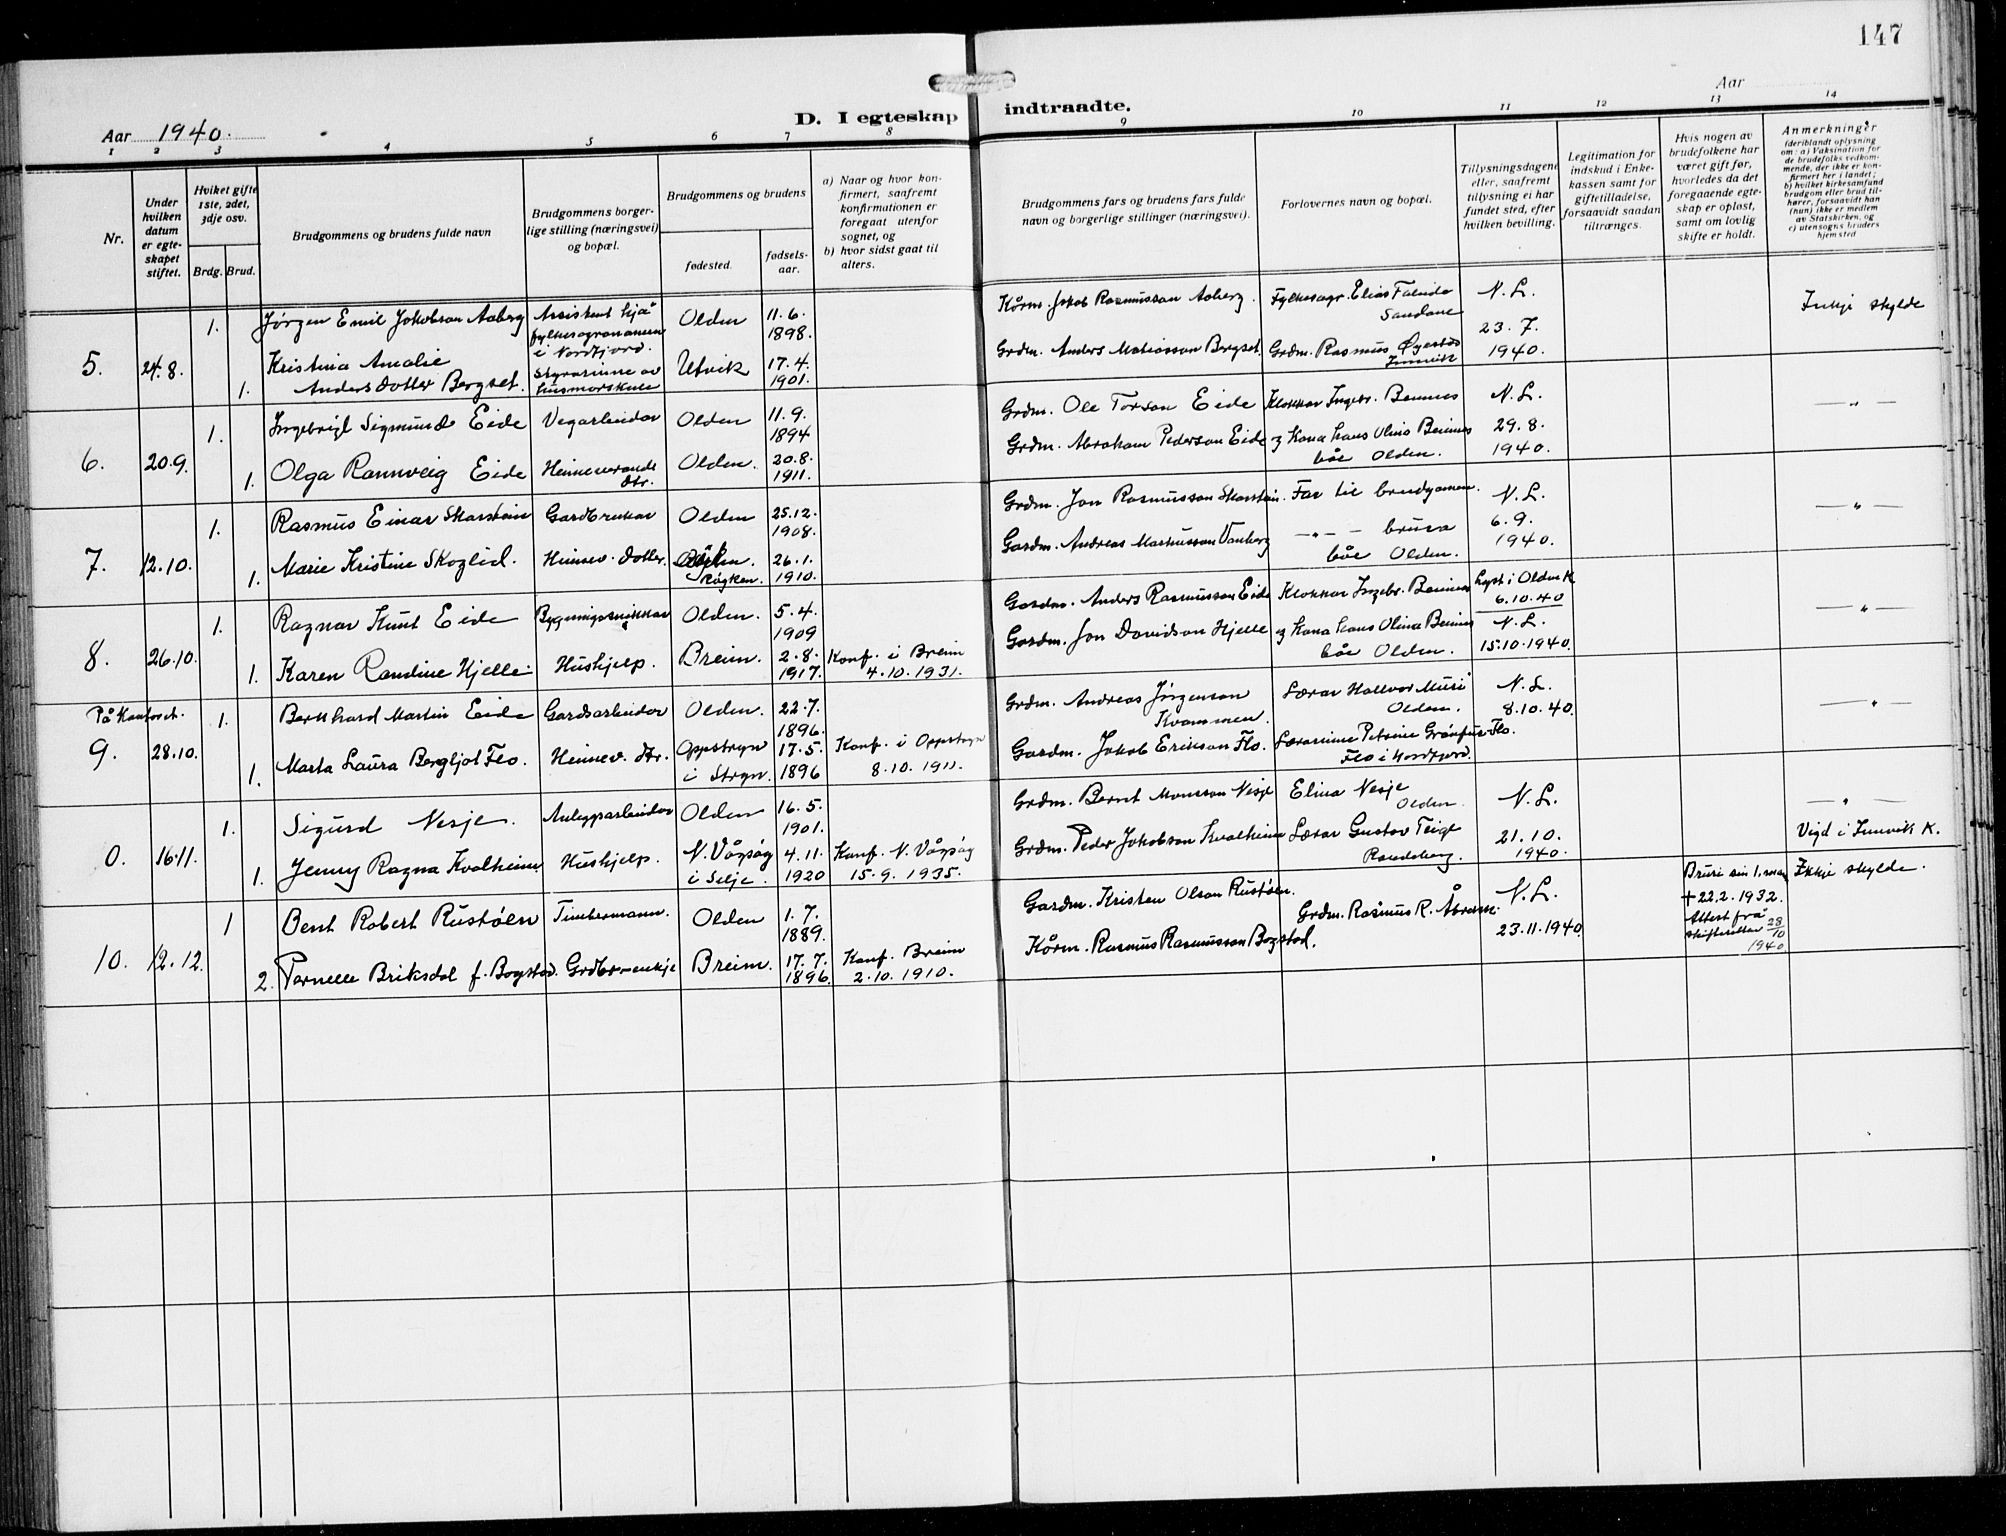 147
Aar 1940.
D. I egteskap indtraadte.
Aar
1 2 3 4 5 6 7 8 9 10 11 12 13 14
Nr.
Under hvilken datum er egteskapet stiftet.
Hviket gifte 1ste, 2det, 3dje osv.
Brdg. Brud.
Brudgommens og brudens fulde navn
Brudgommens borgerlige stilling (næringsvei) og bopæl.
Brudgommens og brudens
fødested.
fødselsaar.
a) Naar og hvor konfirmert, saafremt konfirmationen er foregaat utenfor sognet, og
b) hvor sidst gaat til alters.
Brudgommens fars og brudens fars fulde navn og borgerlige stillinger (næringsvei).
Forlovernes navn og bopæl.
Tillysningsdagene eller, saafremt tillysning ei har fundet sted, efter hvilken bevilling.
Legitimation for indskud i Enkekassen samt for giftetilladelse, forsaavidt saadan tiltrænges.
Hvis nogen av brudefolkene har været gift før, hvorledes da det foregaaende egteskap er opløst, samt om lovlig skifte er holdt.
Anmerkninger (deriblandt oplysning om: a) Vaksination for de brudefolks vedkommende, der ikke er konfirmert her i landet; b) hvilket kirkesamfund brudgom eller brud tilhører, forsaavidt han (hun) ikke er medlem av Statskirken, og c) utensogns bruders hjemsted
5. 24.8. 1. Jørgen Emil Jakobson Aaberg Assistent hjå fylkesagronomen i Nordfjord. Olden 11.6. 1898. Kårm. Jakob Rasmusson Aaberg. Fylkesagr. Elias Sandane N.L. 23.7. 1940. Inkje skylde
1. Kristina Amalie Anders dotter Bergset. Styrarinne av husmorskule Utvik 17.4. 1901. Grdm. Anders Matiasson Bergset. Grdm. Rasmus Innvik
6. 20.9. 1. Ingebrigt Sigmund Eide Vegarbeidar Olden 11.9. 1894 Grdm. Ole Torson Eide Klokkar Ingebr. Bennes N.L. 29.8. 1940. — " —
1. Olga Rannveig Eide Heimeverande dtr. Olden. 20.8. 1911. Grdm. Abraham Pederson Eide og kona hans Olina Bennes båe Olden.
7. 12.10. 1. Rasmus Einar Skarstein Gardbrukar Olden 25.12. 1908. Grdm. Jon Rasmusson Skarstein. Far til brudgomen. N.L. 6.9. 1940. — " —
1. Marie Kristine Skoglid. Heimev. dotter. Røyken. 26.1. 1910. Gardm. Andreas Markusson — " — brura båe Olden.
8. 26.10. 1. Ragnar Knut Eide Bygningssnikkar Olden. 5.4. 1909 Gardm. Anders Rasmusson Eide Klokkar Ingebr. Bennes Lyst i Olden K. 6.10.40 — " —
1. Karen Randine Hjelle. Hushjelp. Breim. 2.8. 1917. Konf. i Breim 4.10.1931. Gardm. Jon Davidson Hjelle og kona hans Olina Bennes båe Olden. N.L. 15.10.1940.
På kontoret.
9. 28.10. 1. Bernhard Martin Eide Gardsarbeidar Olden. 22.7. 1896. Grdm. Andreas Jørgenson Kvammen. Lærar Hallvor Muri Olden. N.L. 8.10.40. — " —
1. Marta Laura Bergljot Flo. Heimev. dtr. Oppstryn i Stryn. 17.5. 1896 Konf. i Oppstryn 8.10.1911. Gardm. Jakob Erikson Flo. Lærarinne Petrine Flo. Flo i Nordfjord.
0. 16.11. 1. Sigurd Nesje. Anleggsarbeidar Olden 16.5. 1901. Grdm. Bernt Monsson Nesje Elina Nesje Olden. N.L. 21.10. 1940. — " — Vigd i Innvik K.
1. Jenny Ragna Kvalheim. Hushjelp. N. Vågsøy i Selje. 4.11. 1920 Konf. N. Vågsøy 15.9.1935. Grdm. Peder Jakobson Kvalheim Lærar Gustav Teigl Randeberg.
10. 12.12. 1 Bent Robert Rustøen Timbermann. Olden 1.7. 1889. Gardm. Kristen Olson Rustøen. Grdm. Rasmus R. Åbrem. N.L. 23.11.1940. Bruri sin 1. mann † 22.2.1932. Attest frå skifteretten 28/10 1940 Ikkje skylde.
2. Pernelle Briksdal f. Bogstad. Grdbr-enkje Breim. 17.7. 1896. Konf. Breim 2.10.1910. Kårm. Rasmus Rasmusson Bogstad.